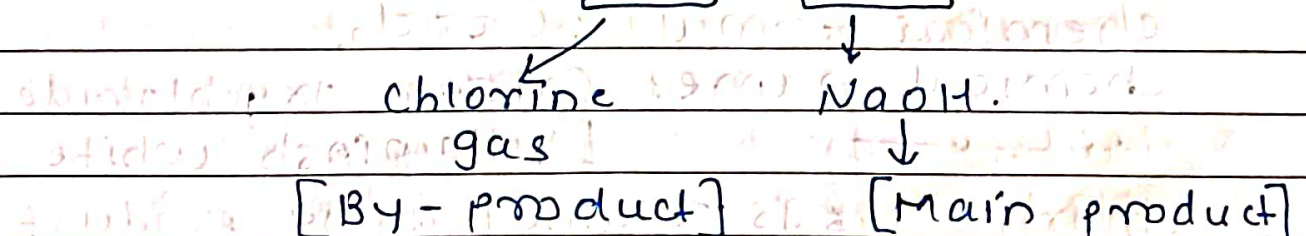 Chlorine NaOH.
gas
[By-product] [Main product]